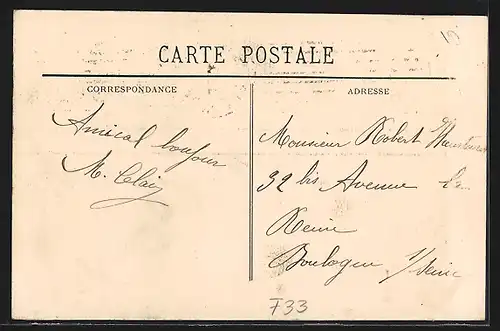 CARTE POSTALE
CORRESPONDANCE
ADRESSE
Amical bonjour
M. Clair
Monsieur Robert
32 bis Avenue la
Reine
Boulogne s/Seine
F33